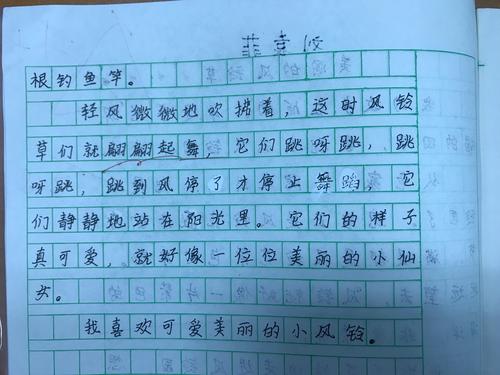 根钓鱼竿。
轻风微微地吹拂着，这时风铃
草们就翩翩起舞，它们跳呀跳，跳
呀跳，跳到风停了才停止舞蹈，它
们静静地站在阳光里。它们的样子
真可爱，就好像一位位美丽的小仙
女。
我喜欢可爱美丽的小风铃。